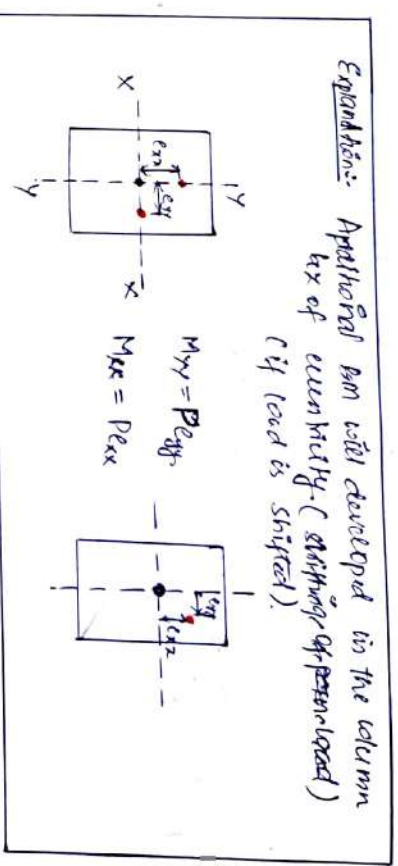 Explanation:- Additional BM will developed in the column
bcz of eccentricity. (shifting of load)
(if load is shifted).
Y
exx
eyy
X
X
Y
Myy = Peyy
Mxx = Pexx
eyy
exx